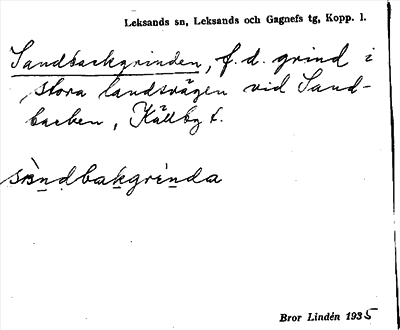 Leksands sn, Leksands och Gagnefs tg, Kopp. l.
Sandbackgrinden, f. d. grind i
stora landsvägen vid Sand-
backen, Källby t.
sàndbakgrinda
Bror Lindén 1935